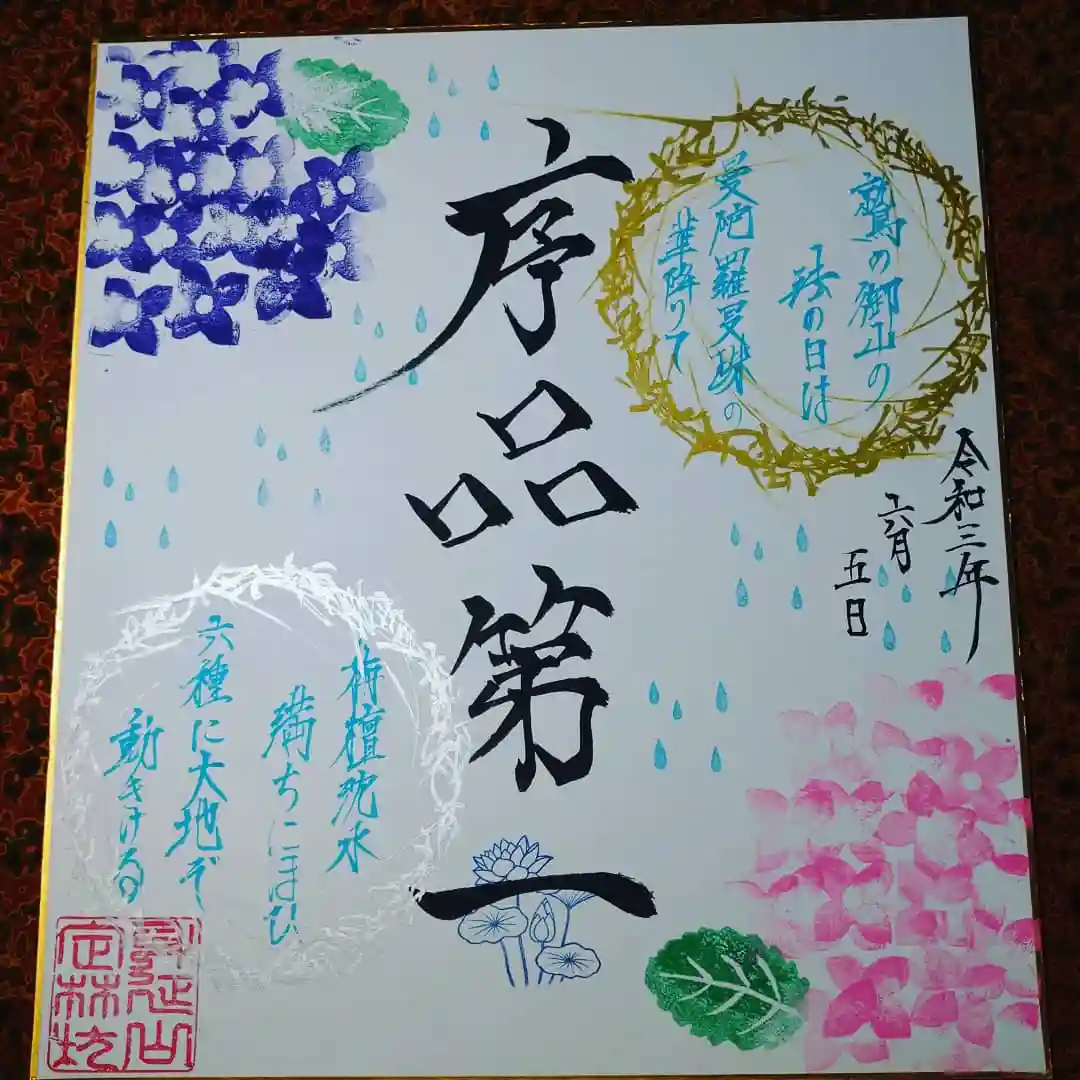 序品第一
鷲の御山の
法の日は
曼陀羅曼殊の
華降りて
栴檀沈水
満ちにほひ
六種に大地ぞ
動きける
令和三年
六月
五日
身延山
定林坊